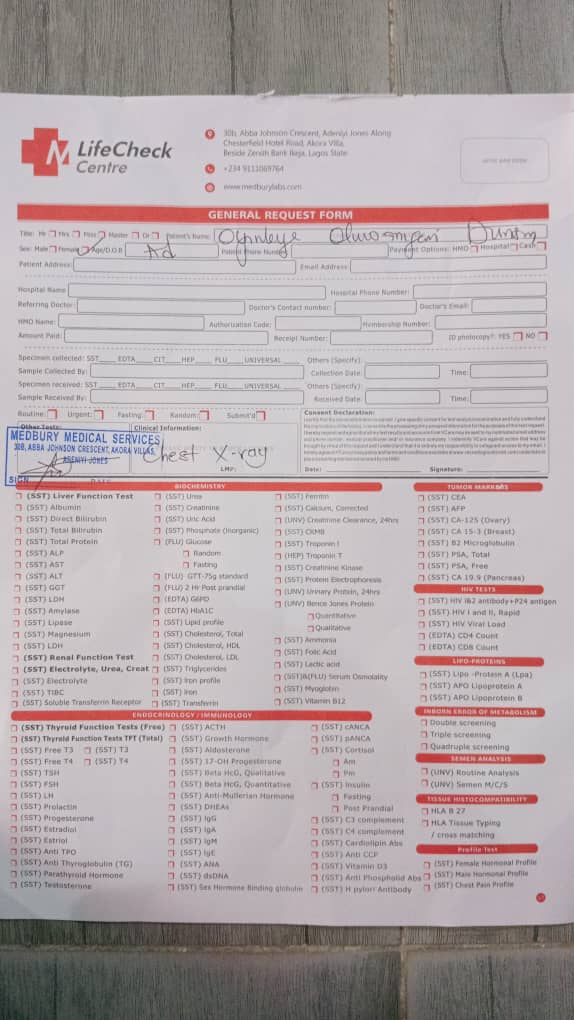 M LifeCheck
Centre
30b, Abba Johnson Crescent, Adeniyi Jones Along
Chesterfield Hotel Road, Akora Villa,
Beside Zenith Bank Ikeja, Lagos State
+234 9111069764
www.medburylabs.com
GENERAL REQUEST FORM
Title: Mr Mrs Miss Master Dr Patient's Name:
Sex: Male Female Age/D.O.B Ad Patient Phone Number Payment Options: HMO Hospital Cash
Patient Address: Email Address:
Hospital Name Hospital Phone Number:
Referring Doctor: Doctor's Contact number: Doctor's Email:
HMO Name: Authorization Code: Membership Number:
Amount Paid: Receipt Number: ID photocopy?: YES NO
Specimen collected: SST____ EDTA____ CIT____ HEP____ FLU____ UNIVERSAL____ Others (Specify):
Sample Collected By: Collection Date: Time:
Specimen received: SST____ EDTA____ CIT____ HEP____ FLU____ UNIVERSAL____ Others (Specify):
Sample Received By: Received Date: Time:
Routine: Urgent: Fasting: Random: Submit'd Consent Declaration:
Other Tests: Clinical Information:
MEDBURY MEDICAL SERVICES
30B, ABBA JOHNSON CRESCENT, AKORA VILLAS,
ADENIYI JONES
SIGN DATE
Chest X-ray
LMP: Date: Signature:
BIOCHEMISTRY
(SST) Liver Function Test
(SST) Albumin
(SST) Direct Bilirubin
(SST) Total Bilirubin
(SST) Total Protein
(SST) ALP
(SST) AST
(SST) ALT
(SST) GGT
(SST) LDH
(SST) Amylase
(SST) Lipase
(SST) Magnesium
(SST) LDH
(SST) Renal Function Test
(SST) Electrolyte, Urea, Creat
(SST) Electrolyte
(SST) TIBC
(SST) Soluble Transferrin Receptor
(SST) Urea
(SST) Creatinine
(SST) Uric Acid
(SST) Phosphate (Inorganic)
(FLU) Glucose
Random
Fasting
(FLU) GTT-75g standard
(FLU) 2 Hr Post prandial
(EDTA) G6PD
(EDTA) HbA1C
(SST) Lipid profile
(SST) Cholesterol, Total
(SST) Cholesterol, HDL
(SST) Cholesterol, LDL
(SST) Triglycerides
(SST) Iron profile
(SST) Iron
(SST) Transferrin
(SST) Ferritin
(SST) Calcium, Corrected
(UNV) Creatinine Clearance, 24hrs
(SST) CKMB
(SST) Troponin I
(HEP) Troponin T
(SST) Creatinine Kinase
(SST) Protein Electrophoresis
(UNV) Urinary Protein, 24hrs
(UNV) Bence Jones Protein
Quantitative
Qualitative
(SST) Ammonia
(SST) Folic Acid
(SST) Lactic acid
(SST)&(FLU) Serum Osmolality
(SST) Myoglobin
(SST) Vitamin B12
TUMOR MARKERS
(SST) CEA
(SST) AFP
(SST) CA-125 (Ovary)
(SST) CA 15-3 (Breast)
(SST) B2 Microglobulin
(SST) PSA, Total
(SST) PSA, Free
(SST) CA 19.9 (Pancreas)
HIV TESTS
(SST) HIV I&2 antibody+P24 antigen
(SST) HIV I and II, Rapid
(SST) HIV Viral Load
(EDTA) CD4 Count
(EDTA) CD8 Count
LIPO-PROTEINS
(SST) Lipo -Protein A (Lpa)
(SST) APO Lipoprotein A
(SST) APO Lipoprotein B
INBORN ERROR OF METABOLISM
Double screening
Triple screening
Quadruple screening
SEMEN ANALYSIS
(UNV) Routine Analysis
(UNV) Semen M/C/S
TISSUE HISTOCOMPATIBILITY
HLA B 27
HLA Tissue Typing
/ cross matching
Profile Test
(SST) Female Hormonal Profile
(SST) Male Hormonal Profile
(SST) Chest Pain Profile
ENDOCRINOLOGY / IMMUNOLOGY
(SST) Thyroid Function Tests (Free)
(SST) Thyroid Function Tests TFT (Total)
(SST) Free T3 (SST) T3
(SST) Free T4 (SST) T4
(SST) TSH
(SST) FSH
(SST) LH
(SST) Prolactin
(SST) Progesterone
(SST) Estradiol
(SST) Estriol
(SST) Anti TPO
(SST) Anti Thyroglobulin (TG)
(SST) Parathyroid Hormone
(SST) Testosterone
(SST) ACTH
(SST) Growth Hormone
(SST) Aldosterone
(SST) 17-OH Progesterone
(SST) Beta HcG, Qualitative
(SST) Beta HcG, Quantitative
(SST) Anti-Mullerian Hormone
(SST) DHEAs
(SST) IgG
(SST) IgA
(SST) IgM
(SST) IgE
(SST) ANA
(SST) dsDNA
(SST) Sex Hormone Binding globulin
(SST) cANCA
(SST) pANCA
(SST) Cortisol
Am
Pm
(SST) Insulin
Fasting
Post Prandial
(SST) C3 complement
(SST) C4 complement
(SST) Cardiolipin Abs
(SST) Anti CCP
(SST) Vitamin D3
(SST) Anti Phospholid Abs
(SST) H pylori Antibody